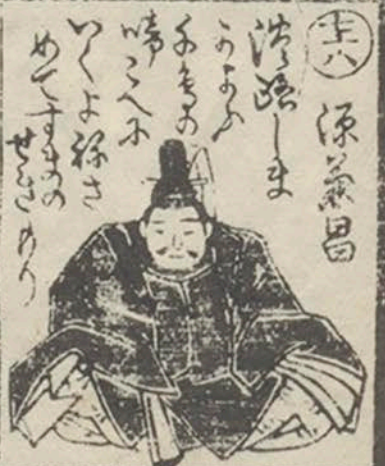 七十八
源兼昌
淡路しま
かよふ
千鳥の
啼こへに
いくよねさ
めてすまの
せきもり